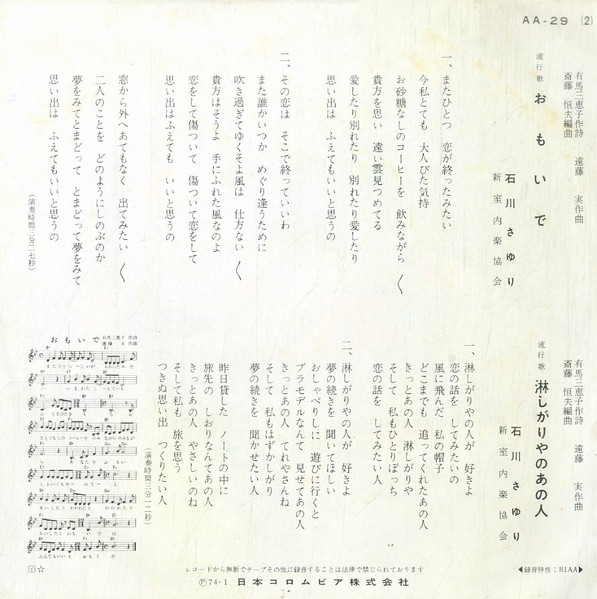 AA-29 (2)
有馬三恵子作詩 遠藤 実作曲
斎藤 恒夫編曲
流行歌 おもいで
石川さゆり
新室内楽協会
一、またひとつ 恋が終ったみたい
今私とても 大人びた気持
お砂糖なしのコーヒーを 飲みながら 〱
貴方を思い 遠い雲見つめてる
愛したり別れたり 別れたり愛したり
思い出は ふえてもいいと思うの
二、その恋は そこで終っていいわ
また誰かいつか めぐり逢うために
吹き過ぎてゆくそよ風は 仕方ない 〱
貴方はそうよ 手にふれた風なのよ
恋をして傷ついて 傷ついて恋をして
思い出はふえても いいと思うの
窓から外へあてもなく 出てみたい 〱
二人のことを どのようにしのぶのか
夢をみてとまどって とまどって夢をみて
思い出は ふえてもいいと思うの
(演奏時間三分二七秒)
有馬三恵子作詩 遠藤 実作曲
斎藤 恒夫編曲
流行歌 淋しがりやのあの人
石川さゆり
新室内楽協会
一、淋しがりやの人が 好きよ
恋の話を してみたいの
風に飛んだ 私の帽子
どこまでも 追ってくれたあの人
きっとあの人 淋しがりや
そして 私もひとりぼっち
恋の話を してみたい人
二、淋しがりやの人が 好きよ
夢の続きを 聞いてほしい
おしゃべりしに 遊びに行くと
プラモデルなんて 見せてあの人
きっとあの人 てれやさんね
そして 私もはずかしがり
夢の続きを 聞かせたい人
昨日貸した ノートの中に
旅先の しおりなんてあの人
きっとあの人 やさしいのね
そして私も 旅を思う
つきぬ思い出 つくりたい人
(演奏時間三分一二秒)
おもいで
有馬三恵子 作詩
レコードから無断でテープその他に録音することは法律で禁じられております
Ⓟ74・1 日本コロムビア株式会社
◀録音特性：RIAA▶